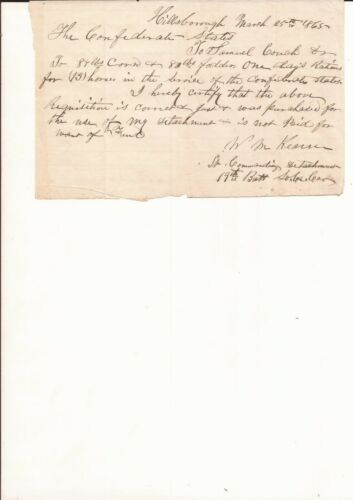 Hillsborough March 25th 1865
The Confederate States
To Samuel Couch Dr
To 80 lbs Corn & 80 lbs fodder One day's Rations
for horses in the Service of the Confederate States
I hereby certify that the above
Requisition is correct & just & was purchased for
the use of my detachment & is not Paid for
want of
W. M.
Lt Commanding detachment
19th Batt So Ca Cav